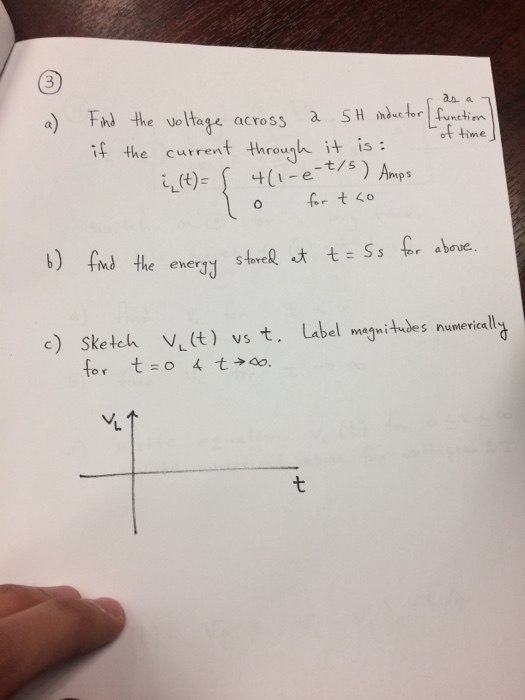 3
a) Find the voltage across a 5H inductor [as a function of time]
if the current through it is:
i_L(t) = { 4(1-e^-t/5) Amps
0 for t<0
b) find the energy stored at t = 5s for above.
c) Sketch V_L(t) vs t. Label magnitudes numerically
for t=0 & t→∞.
V_L
t